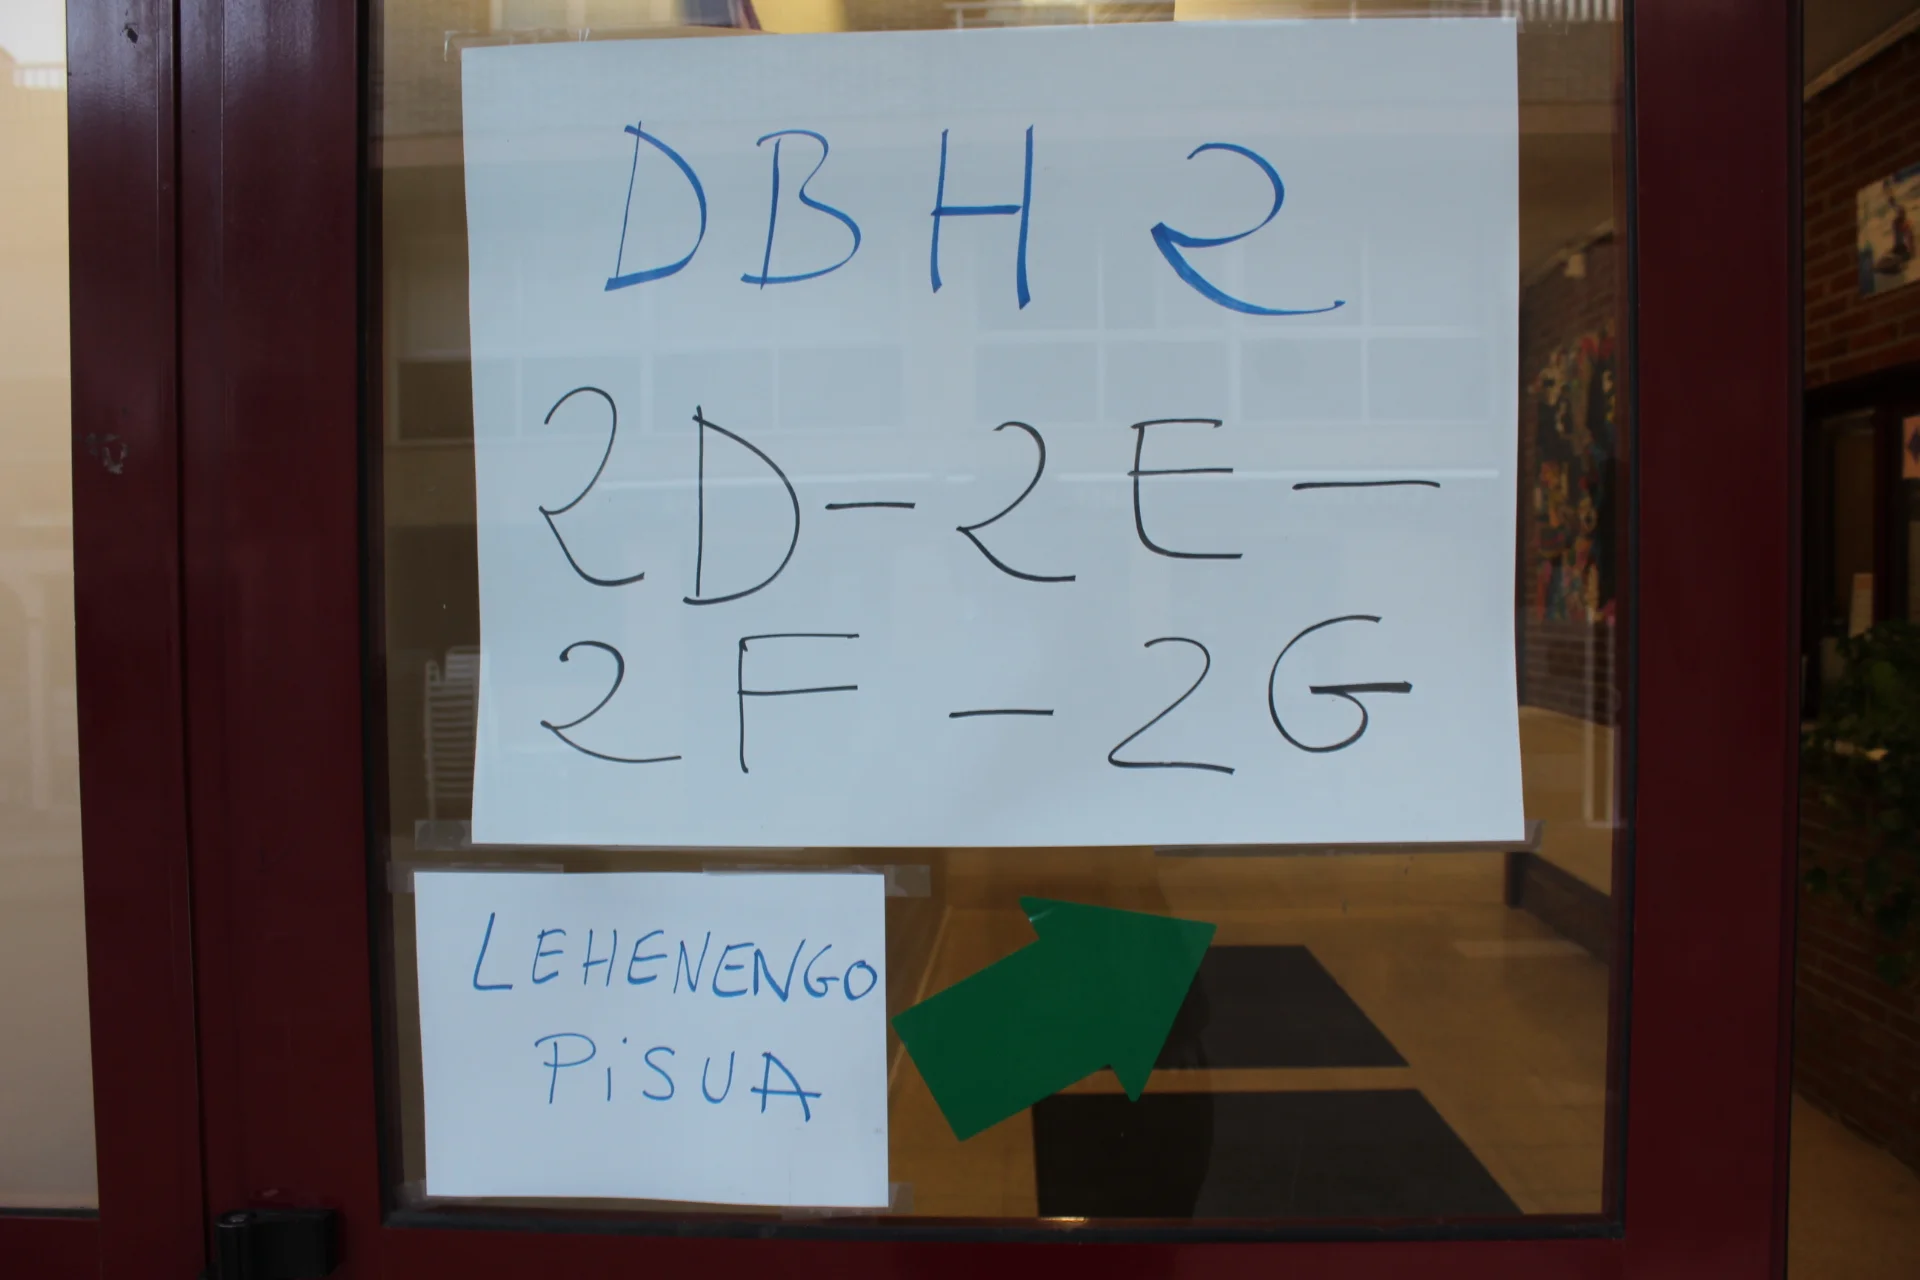 DBH 2
2D - 2E -
2F - 2G
LEHENENGO
PiSUA